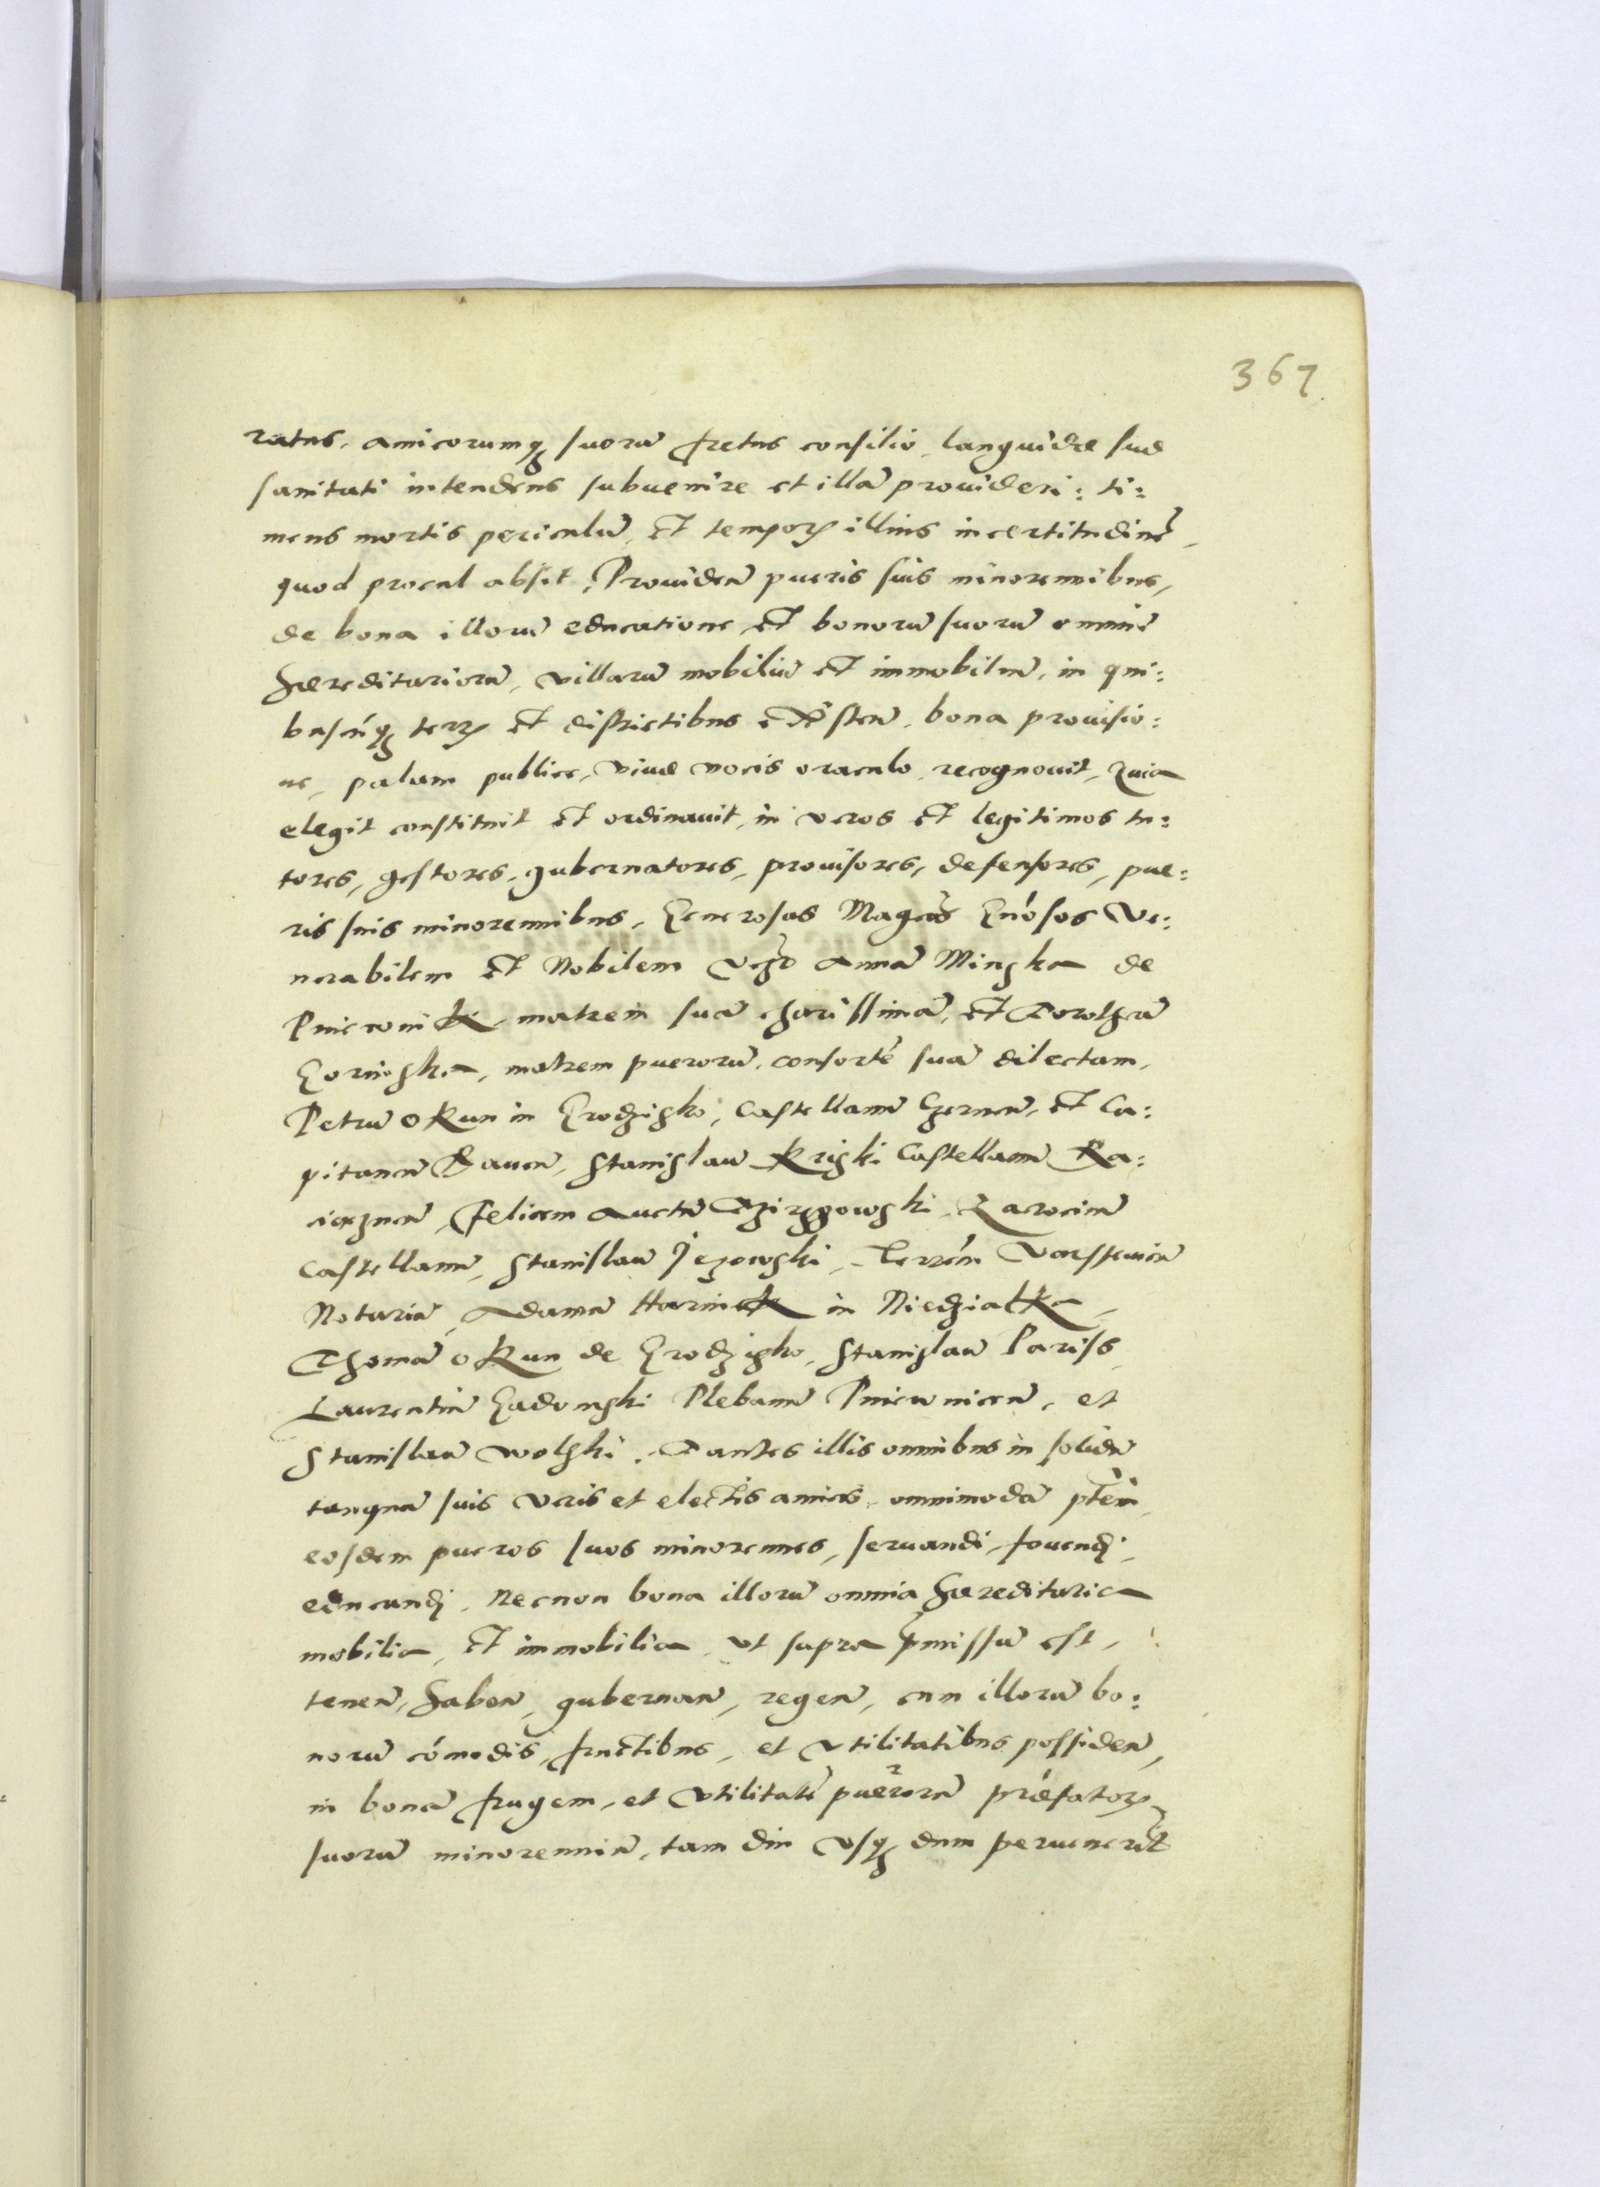 367
ratus, amicorumq₃ suorũ fretus consilio, languidæ suæ
sanitati intendens subuenire et illã prouideri: ti:
mens mortis periculũ, et tempor₃ illius incertitudinẽ,
quod procul absit, Prouidẽn pueris suis minorennibus,
de bona illorũ educatione, et bonorũ suorũ omniũ
hæreditariorũ, villarũ mobiliũ et immobiliũ, in qui:
buscũq₃ terr₃ et districtibus existeñ, bona prouisio:
ne, palam publice, viuæ vocis oraculo, recognouit, Quia
elegit constituit et ordinauit, in veros et legitimos tu:
tores, gestores, gubernatores, prouisores, defensores, pue:
ris suis minorennibus, Generosas Magcos Gñosos Ve:
nerabilem et Nobilem Annã Minska de
Pniewnik, matrem suã charissimã, et Dorotheã
Gorinska, matrem puerorũ, consortẽ suã dilectam,
Petrũ Okun in Grodzisko, Castellanũ Czerneñ, et Ca:
pitaneũ Raueñ, Stanislaũ Kriski Castellanũ Ra:
ciązneñ, Felicem Auctũ Zarociñ
Castellanũ, Stanislaũ Jezowski, Terrẽm Varsseuieñ
Notariũ, Adamũ Harink in Niedzialka,
Thomã Okun de Grodzisko, Stanislaũ Pariss,
Laurentiũ Gadomski Plebanũ Pniewniceñ, et
Stanislaũ Wolski. Dantes illis omnibus in solidũ
tanquã suis veris et electis amicis, omnimodã ptẽm
eosdem pueros suos minorennes, seruandi, fouendi,
educandi, Necnon bona illorũ omnia hæreditaria
mobilia, et immobilia, ut supra pmissũ est,
teneñ, habeñ, gubernañ, regeñ, cum illorũ bo:
norũ cõmodis, fructibus, et vtilitatibus possideñ,
in bonã frugem, et vtilitatẽ puerorũ præfator₃
suorũ minorenniũ, tam diu vsq₃ dum peruenerĩt